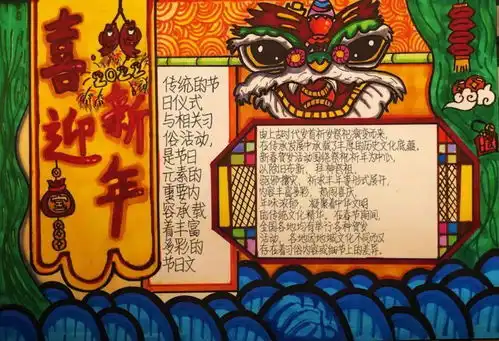 喜迎
新年
2022
传统的节
日仪式
与相关习
俗活动,
是节日
元素的
重要内
容承载
着丰富
多彩的
节日文
由上古时代岁首祈岁祭祀演变而来,
在传承发展中承载了丰厚的历史文化底蕴。
新春贺岁活动围绕祭祝祈年为中心,
以除旧布新、拜神祭祖、
驱邪攘灾、祈求丰年等形式展开,
内容丰富多彩,热闹喜庆
年味浓郁,凝聚着中华文明
的传统文化精华。在春节期间
全国各地均有举行各种贺岁
活动,各地因地域文化不同而又
存在着习俗内容或细节上的差异。